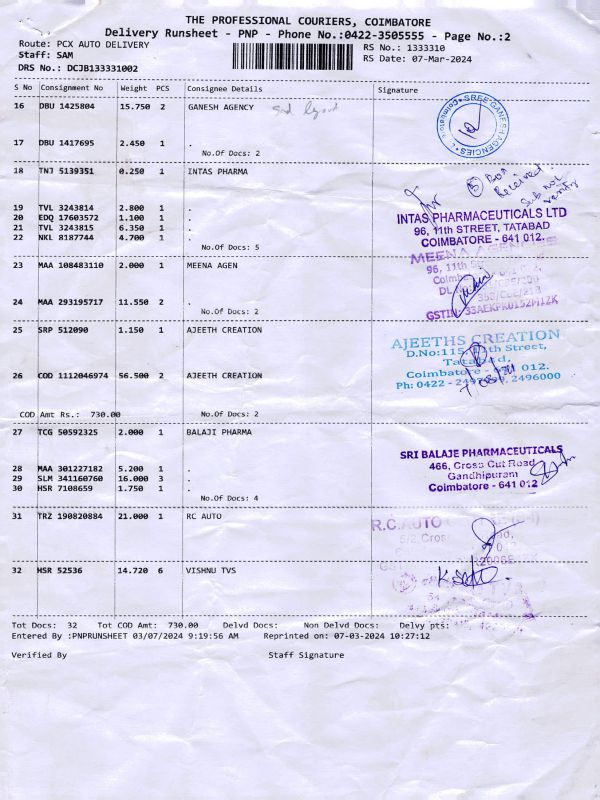 THE PROFESSIONAL COURIERS, COIMBATORE
Delivery Runsheet - PNP - Phone No.:0422-3505555 - Page No.:2
Route: PCX AUTO DELIVERY
Staff: SAM
DRS No.: DCJB133331002
RS No.: 1333310
RS Date: 07-Mar-2024
S No Consignment No Weight PCS Consignee Details Signature
16 DBU 1425804 15.750 2 GANESH AGENCY
SREE GANESH AGENCIES
17 DBU 1417695 2.450 1 .
No.Of Docs: 2
18 TNJ 5139351 0.250 1 INTAS PHARMA
5 Box
Received
Sub not
verify
19 TVL 3243814 2.800 1 .
20 EDQ 17603572 1.100 1 .
21 TVL 3243815 6.350 1 .
22 NKL 8187744 4.700 1 .
No.Of Docs: 5
INTAS PHARMACEUTICALS LTD
96, 11th STREET, TATABAD
COIMBATORE - 641 012.
23 MAA 108483110 2.000 1 MEENA AGEN
MEENA
96, 11th
24 MAA 293195717 11.550 2 .
No.Of Docs: 2
25 SRP 512090 1.150 1 AJEETH CREATION
AJEETHS CREATION
D.No:115, 11th Street,
Tatabad,
Coimbatore - 641 012.
Ph: 0422 - 2496000
26 COD 1112046974 56.500 2 AJEETH CREATION
COD Amt Rs.: 730.00 No.Of Docs: 2
27 TCG 50592325 2.000 1 BALAJI PHARMA
28 MAA 301227182 5.200 1 .
29 SLM 341160760 16.000 3 .
30 HSR 7108659 1.750 1 .
No.Of Docs: 4
SRI BALAJE PHARMACEUTICALS
466, Cross Cut Road
Gandhipuram
Coimbatore - 641 012
31 TRZ 190820884 21.000 1 RC AUTO
R.C.AUTO
32 HSR 52536 14.720 6 VISHNU TVS
Tot Docs: 32 Tot COD Amt: 730.00 Delvd Docs: Non Delvd Docs: Delvy pts:
Entered By :PNPRUNSHEET 03/07/2024 9:19:56 AM Reprinted on: 07-03-2024 10:27:12
Verified By Staff Signature